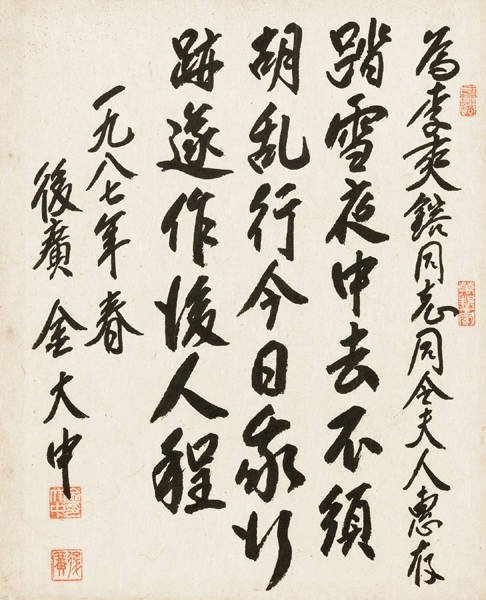 為李奭鎔同志同令夫人惠存
踏雪夜中去不須
胡亂行今日我行
跡遂作後人程
一九八七年春
後廣 金大中
後廣